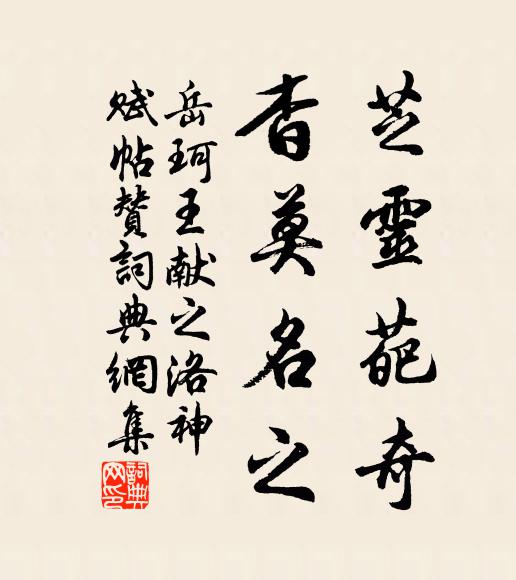 芝靈葩奇
杳莫名之
岳珂王献之洛神
赋帖賛詞典網集
詞典网印